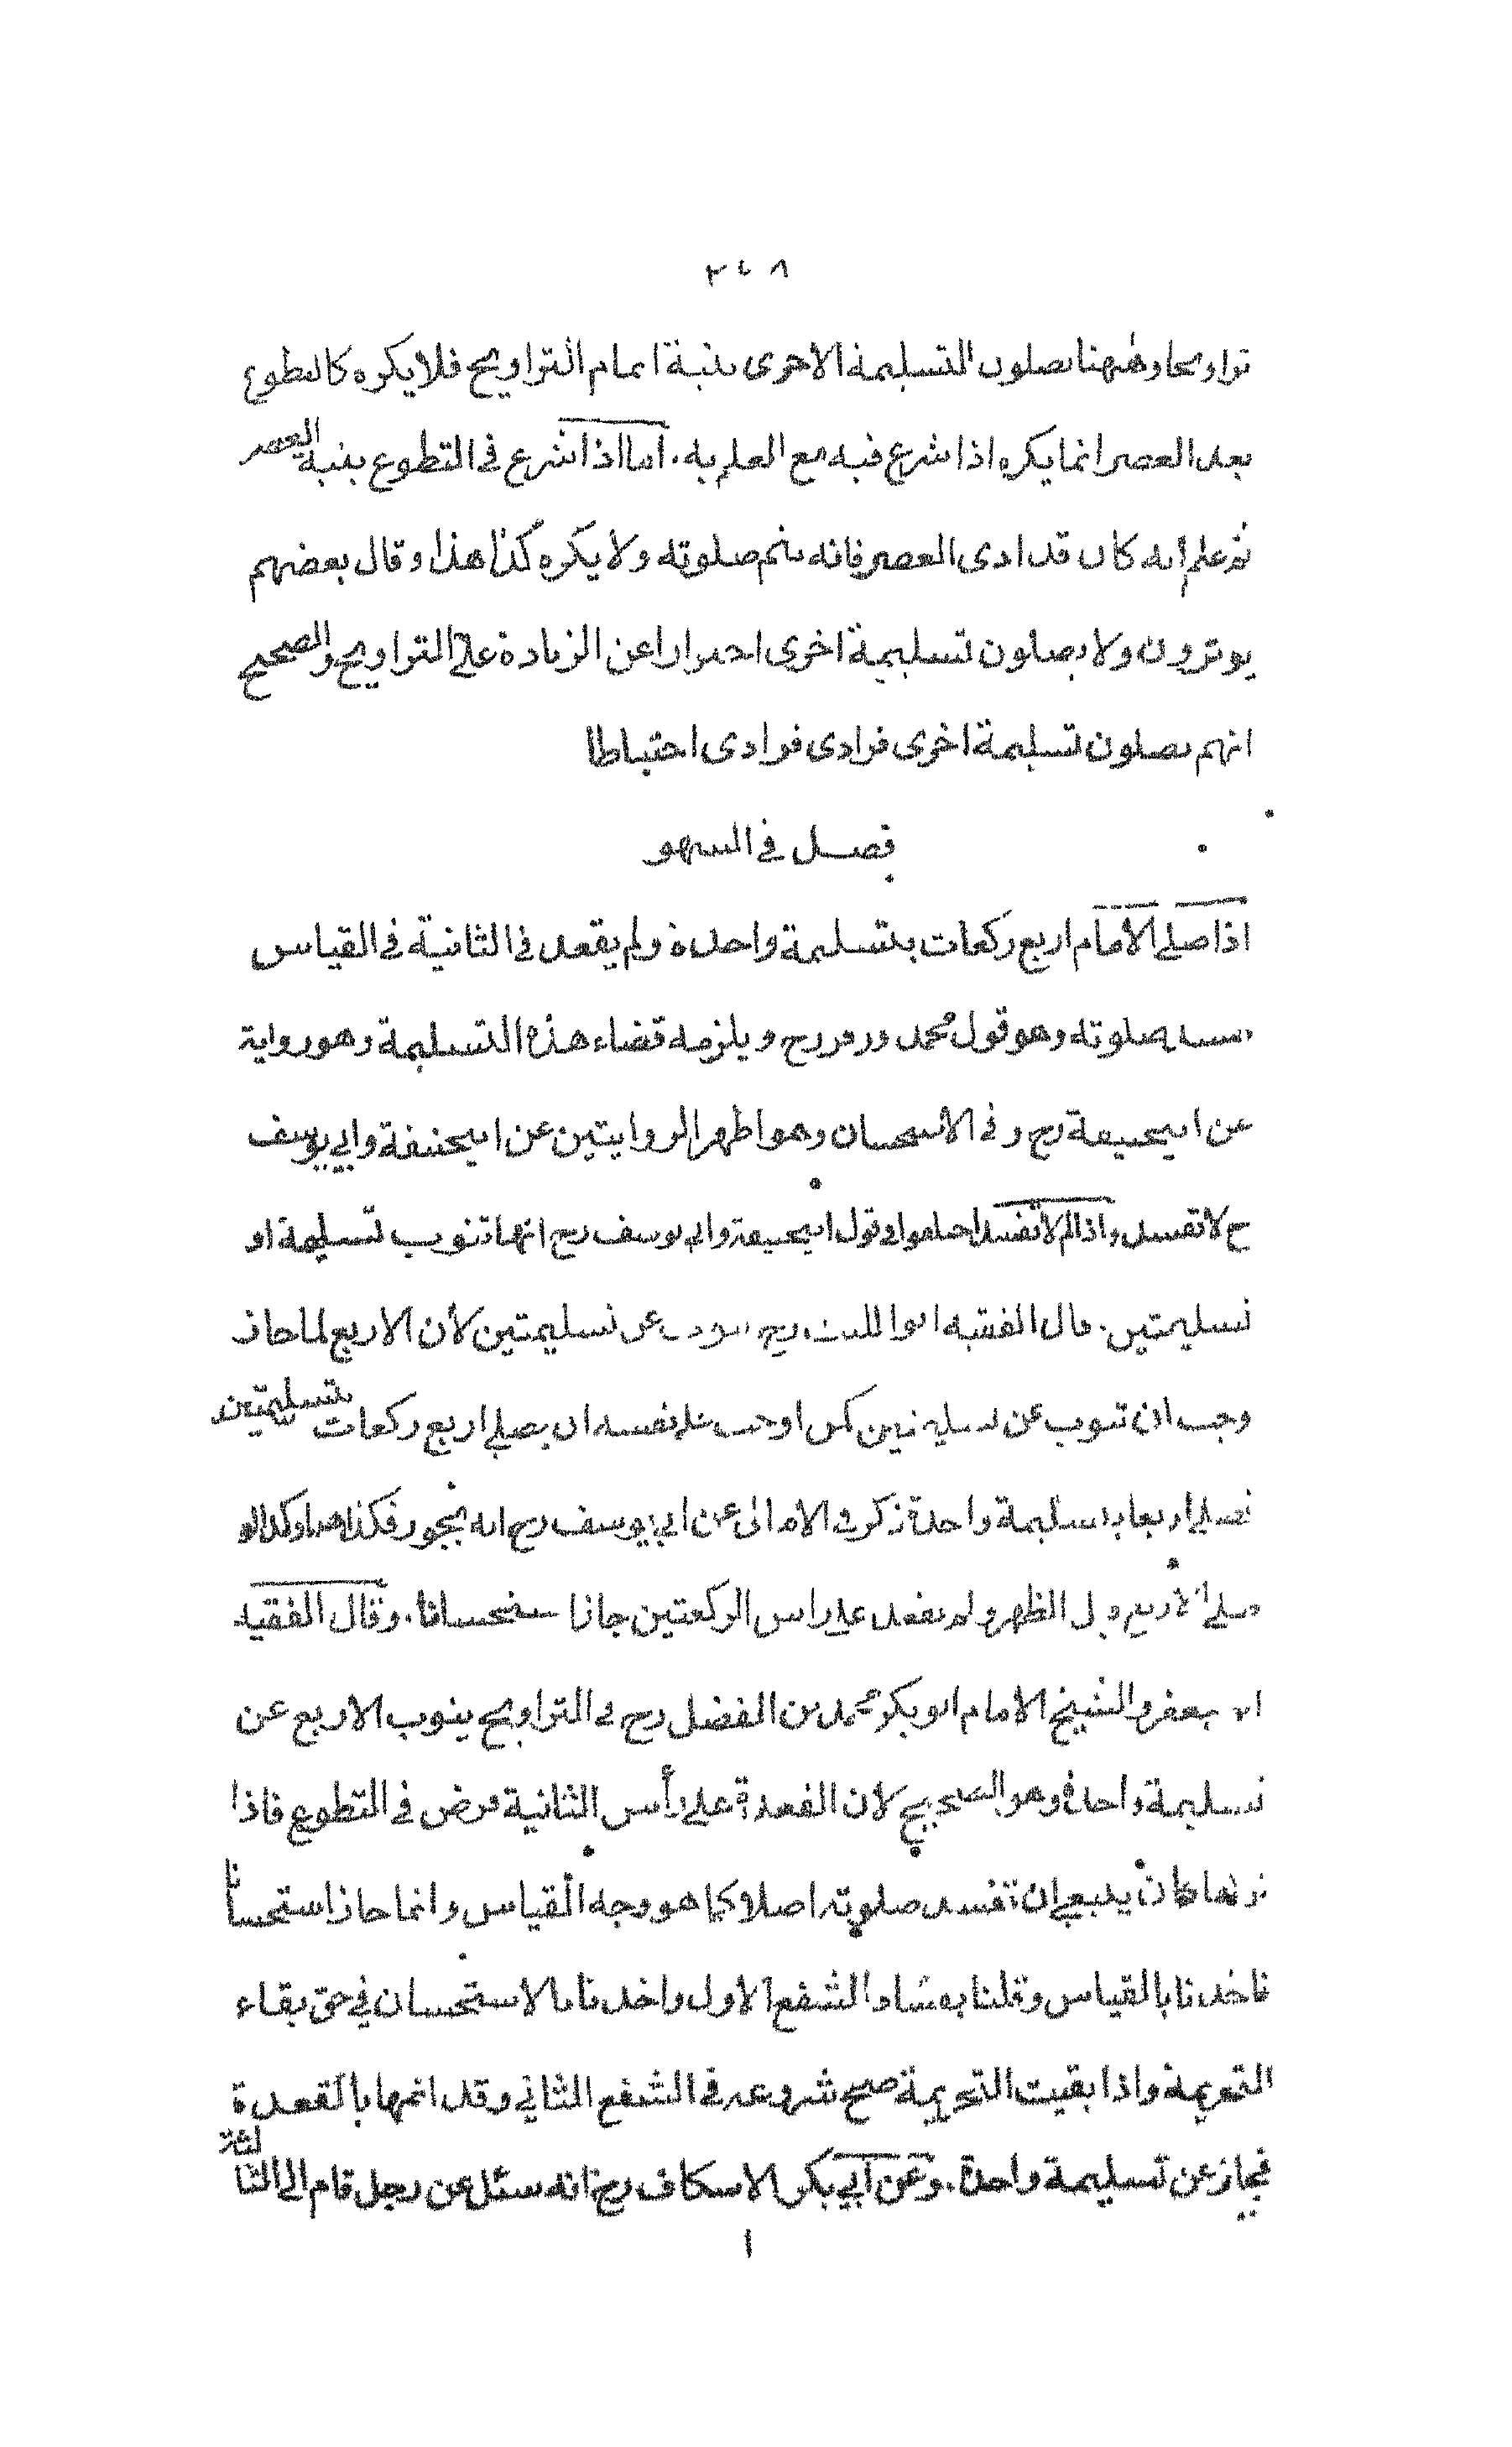 ٢٤٨
تراويحا وههنا يصلون التسليمة الاخرى بنية اتمام التراويح فلا يكره كالتطوع
بعد العصر انما يكره اذا شرع فيه مع العلم به. اما اذا شرع في التطوع بنية العصر
ثم علم انه كان قد ادى العصر فانه يتم صلوته ولا يكره كذا هذا وقال بعضهم
يوترون ولا يصلون تسليمة اخرى احترازا عن الزيادة على التراويح والصحيح
انهم يصلون تسليمة اخرى فرادى فرادى احتياطا
فصل في السهو
اذا صلى الامام اربع ركعات بتسليمة واحدة ولم يقعد في الثانية في القياس
تفسد صلوته وهو قول محمد وزفر رح ويلزمه قضاء هذه التسليمة وهو رواية
عن ابيحنيفة رح وفي الاستحسان وهو اظهر الروايتين عن ابيحنيفة وابي يوسف
رح لا تفسد واذا لم لا تفسد اختلفوا في قول ابيحنيفة وابي يوسف رح انها تنوب تسليمة او
تسليمتين. قال الفقيه ابو الليث رح تنوب عن تسليمتين لأن الاربع لما جاز
وجب ان تنوب عن تسليمتين كمن اوجب على نفسه ان يصلي اربع ركعات بتسليمتين
فصلى اربعا بتسليمة واحدة ذكر في الامالى عن ابي يوسف رح انه يجوز فكذا هذا وكذا لو
صلى الاربع قبل الظهر ولم يقعد على راس الركعتين جاز استحسانا. وقال الفقيه
ابو جعفر والشيخ الامام ابو بكر محمد بن الفضل رح في التراويح ينوب الاربع عن
تسليمة واحدة وهو الصحيح لان القعدة على رأس الثانية فرض في التطوع فاذا
تركها كان ينبغي ان تفسد صلوته اصلا كما هو وجه القياس وانما جاز استحسانا
فاخذنا بالقياس وقلنا بفساد الشفع الاول واخذنا بالاستحسان في حق بقاء
التحريمة واذا بقيت التحريمة صح شروعه في الشفع الثاني وقد اتمها بالقعدة
فجاز عن تسليمة واحدة. وعن ابي بكر الاسكاف رح انه سئل عن رجل قام الى الثالثة
ا